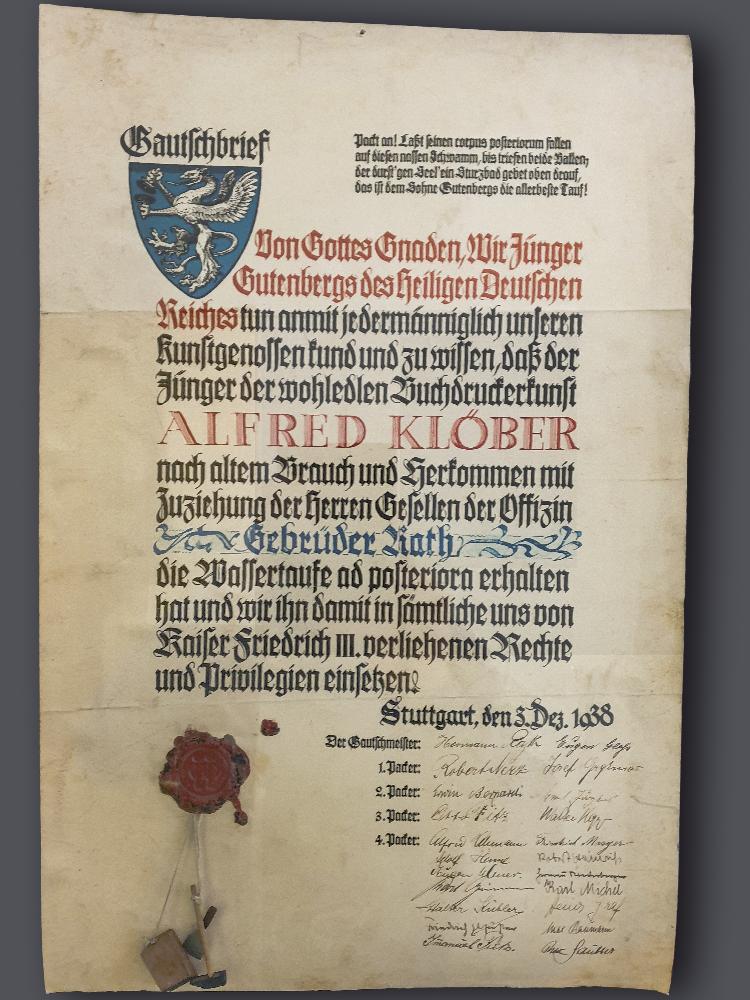 Gautschbrief
Packt an! Laßt seinen corpus posteriorum fallen
auf diesen nassen Schwamm, bis triefen beide Ballen;
der durst'gen Seel' ein Sturzbad gebet oben drauf,
das ist dem Sohne Gutenbergs die allerbeste Tauf!
Von Gottes Gnaden, Wir Jünger
Gutenbergs des Heiligen Deutschen
Reiches tun anmit jedermänniglich unseren
Kunstgenossen kund und zu wissen, daß der
Jünger der wohledlen Buchdruckerkunst
ALFRED KLÖBER
nach altem Brauch und Herkommen mit
Zuziehung der Herren Gesellen der Offizin
Gebrüder Rath
die Wassertaufe ad posteriora erhalten
hat und wir ihn damit in sämtliche uns von
Kaiser Friedrich III. verliehenen Rechte
und Privilegien einsetzen.
Stuttgart, den 3. Dez. 1938
Der Gautschmeister: Hermann Eugen
1. Packer: Robert Josef
2. Packer: Erwin
3. Packer: Walter
4. Packer: Alfred Friedrich
Adolf Robert
Eugen
Karl Michel
Walter Kübler
Max Baumann